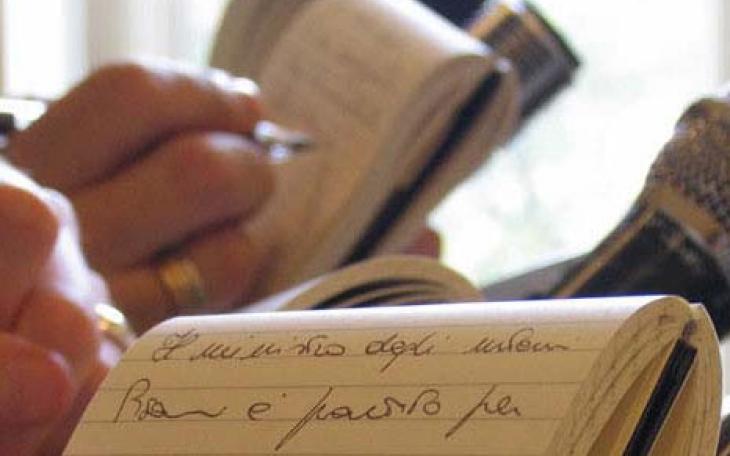 Il ministro degli interni
è partito per